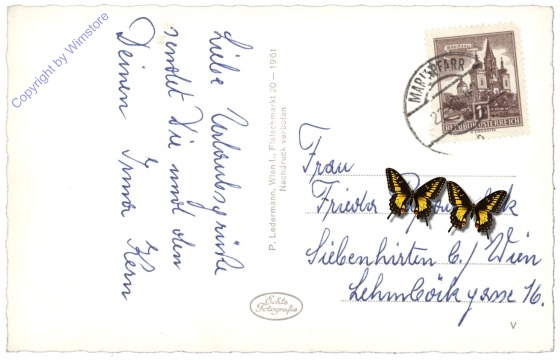 Copyright by Wimstore
Liebe Urlaubsgrüße
sendet Die und den
Deinen Irma Kern
P. Ledermann, Wien I., Fleischmarkt 20 — 1961
Nachdruck verboten
Echte
Fotografie
REPUBLIK ÖSTERREICH
MARIAPFARR
Frau
Frieda
Siebenhirten b./Wien
Lehmböckgasse 16.
V